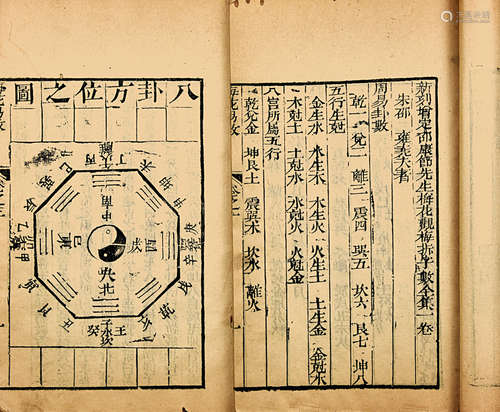 新刻增定邵康節先生梅花觀梅拆字數全集一卷
宋邵 雍堯夫著
周易卦數
乾一 兌二 離三 震四 巽五 坎六 艮七 坤八
五行生尅
金生水 水生木 木生火 火生土 土生金
金尅木 木尅土 土尅水 水尅火 火尅金
八宮所屬五行
乾兌金 坤艮土 震巽木 坎水 離火
八卦方位之圖
丙午丁
離
南
中
央
北
子水坎
壬
癸
庚
辛
戌
乾
亥
丑
艮
寅
甲
乙
巳
未
坤
申